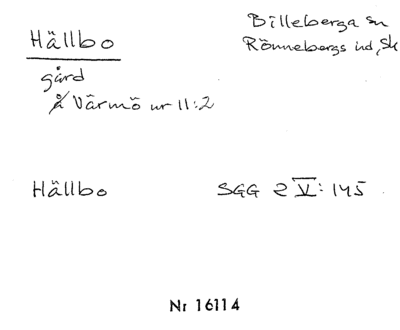 Hällbo
Billeberga sn
Rönnebergs hd, Sk
gård
å Värmö nr 11:2
Hällbo
SGG 2 V: 145
Nr 16114